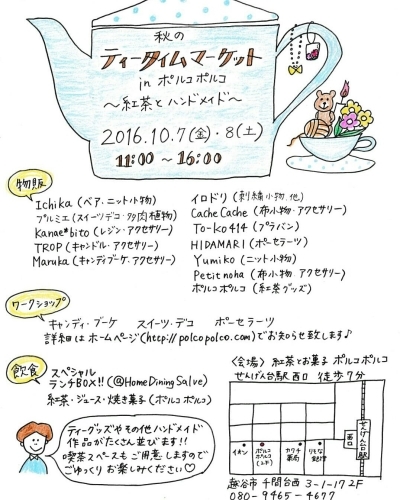 秋の
ティータイムマーケット
in ポルコポルコ
～紅茶とハンドメイド～
2016.10.7(金)・8(土)
11:00 ～ 16:00
物販
Ichika (ベア・ニット小物)
プルミエ (スイーツデコ・多肉植物)
Kanae*bito (レジン・アクセサリー)
TROP (キャンドル・アクセサリー)
Maruka (キャンディブーケ・アクセサリー)
イロドリ (刺繍小物 他)
Cache Cache (布小物・アクセサリー)
To-ko414 (プラバン)
HIDAMARI (ポーセラーツ)
Yumiko (ニット小物)
Petit noha (布小物・アクセサリー)
ポルコポルコ (紅茶グッズ)
ワークショップ
キャンディ・ブーケ スイーツ・デコ ポーセラーツ
詳細はホームページ(http://polcopolco.com)でお知らせ致します♪
飲食
スペシャル
ランチBOX!! (@HomeDiningSalve)
紅茶・ジュース・焼き菓子 (ポルコポルコ)
ティーグッズやその他ハンドメイド
作品がたくさん並びます!!
喫茶スペースもご用意しますので
ごゆっくりお楽しみください♡
〈会場〉 紅茶とお菓子 ポルコポルコ
せんげん台駅 西口 徒歩7分
イオン
ポルコポルコ(2F)
カワチ薬局
りそな銀行
西口
せんげん台駅
越谷市千間台西 3-1-17 2F
080-9465-4277